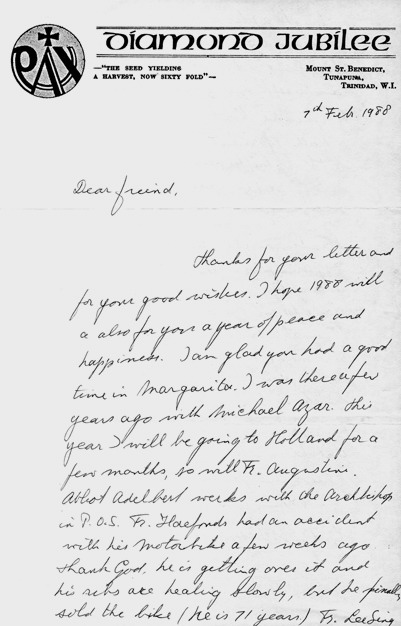 PAX
DIAMOND JUBILEE
—"THE SEED YIELDING
A HARVEST, NOW SIXTY FOLD"—
MOUNT ST. BENEDICT,
TUNAPUNA,
TRINIDAD, W.I.
7th Feb. 1988
Dear freind,
Thanks for your letter and
for your good wishes. I hope 1988 will
a also for you a year of peace and
happiness. I am glad you had a good
time in Margarita. I was there a few
years ago with Michael Azar. This
year I will be going to Holland for a
few months, so will Fr. Augustine.
Abbot Adelbert works with the Archbishop
in P.O.S. Fr. had an accident
with his motorbike a few weeks ago
thank God, he is getting over it and
his ribs are healing slowly, but he finally
sold the bike (he is 71 years) Fr.